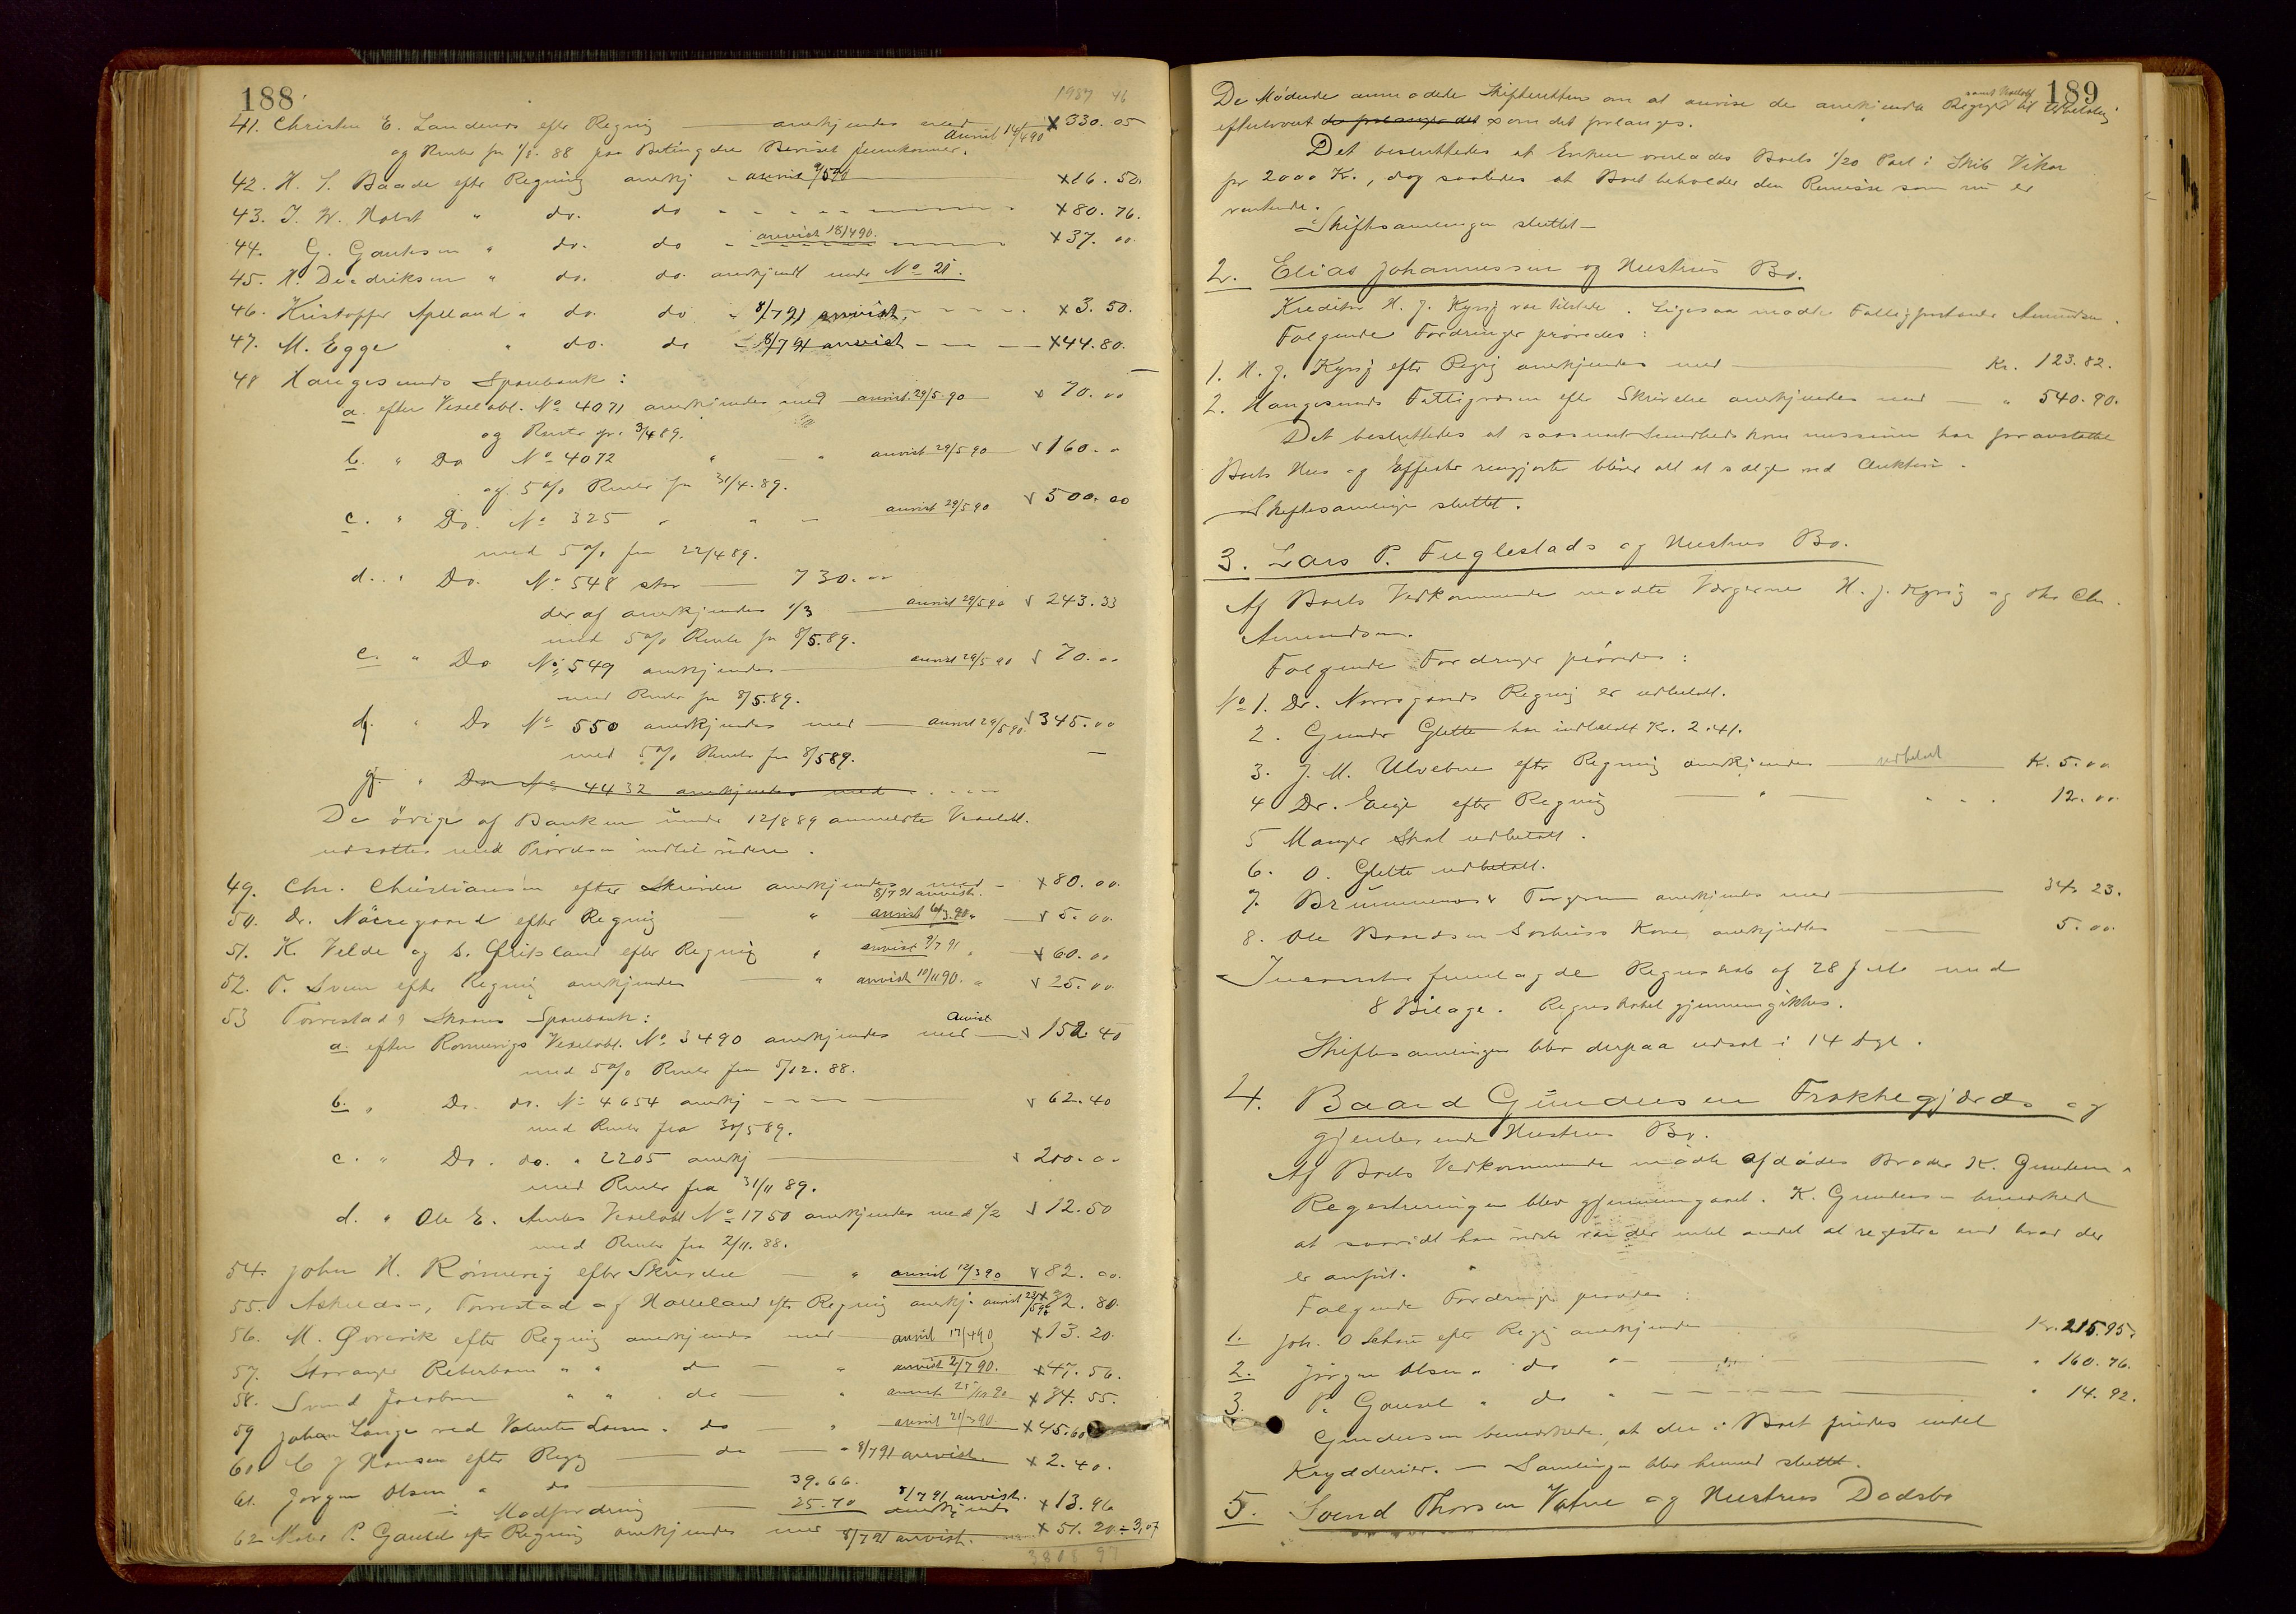 188
1987 46
41. Christen E. Landenes efter Regnig anerkjendes med × 330.05
anvist 14/4 90
og Renter fra 1/8. 88 paa Betingelse Beviset fremkommer.
42. H. S. Baade efter Regning anerkj - anvist 9/5 90 × 16.50.
43. J. W. Holst " do. do × 80.76.
44. G. Gautesen " do. do - anvist 18/4 90. × 37.00
45. H. Diedriksen " do. do. anerkjendt under No 21.
46. Kristoffer Apeland " do. do " 8/7 91 anvist. × 3.50.
47. M. Egge " do. do - 8/7 91 anvist × 44.80.
48 Haugesunds Sparebank:
a. efter Vexelobl. No 4071 anerkjendes med anvist 29/5 90 × 70.00
og Renter fr. 3/4 89.
b. " Do No 4072 " " anvist 29/5 90 160.00
og 5 % Renter fra 31/4. 89.
c. " Do. No 325 " " anvist 29/5 90 500.00
med 5 % fra 22/4 89.
d. " Do. No 548 stor 730.00
der af anerkjendes 1/3 anvist 29/5 90 243.33
med 5 % Rente fr 8/5. 89.
e. " Do No 549 anerkjendes anvist 29/5 90 70.00
med Renter fra 8/5. 89.
f. " Do No 550 anerkjendes med anvist 29/5 90. 345.00
med 5 % Renter fra 8/5 89.
g. " Do No 4432 anerkjendes med
De övrige af Banken under 12/8 89 anmeldte Vexelobl.
udsattes med Prövelsen indtil videre.
49. Chr. Christiansen efter Skrivelse anerkjendes med × 80.00.
8/7 91 anvist.
50. Dr. Nörregaard efter Regnig " anvist 6/3. 90 " 5.00.
51. K. Velde og S. Östsland efter Regnig " anvist 9/7 91 " × 60.00
52. T. Sveen efter Regnig anerkjendes " anvist 10/11 90. " 25.00
53 Torvestad & Skaare Sparebank: anvist
a. efter Rönnevigs Vexelobl. No 3490 anerkjendes med 152 40
med 5 % Renter fra 5/12. 88.
b. " Do. do. No 4654 anerkj 62.40
med Renter fra 30/5 89.
c. " Do. do. " 2205 anerkj 200.00
med Renter fra 31/11 89.
d. " Ole E. Vexelobl No 1750 anerkjendes med 1/2 12.50
med Renter fra 2/11. 88.
54. John H. Rönnevig efter Skrivelse " anvist 12/3 90 82.00.
55. Askeldsen, Torvestad af Haueland efter Regnig anerkj. anvist 23/5 90 × 32.80.
56. M. Qvrevik efter Regnig anerkjendes med anvist 17/4 90 × 13.20.
57. Stavanger Reberbane " " do " anvist 2/7 90. × 47.56.
58. Svend Jacobsen " " do " anvist 25/10 90 × 34.55.
59 Johan Lange ved Valentin Loven " do " anvist 21/3 90 × 45.60
60. C J Hansen efter Regg do - 8/7 91 anvist. × 2.40.
61. Jörgen Olsen " do 39.66.
÷ Modfordring 25.70 8/7 91 anvist. anerkjendes × 13.96
62 P. Gausel efter Regning anerkjendes med 8/7 91 anvist. × 51.20 ÷ 3,07
3808 97
189
De Mödende anmodede Skifteretten om at anvise de anerkjendte Regnger samt Vexelobl til Udbetaling
efterhvert de forlanges det som det forlanges.
Det besluttedes at Enken overlades Boets 1/20 Part i Skib Vikar
for 2000 Kr., dog saaledes at Boet beholder den Remisse som nu er
ventende.
Skiftesamlingen sluttet -
2. Elias Johannessen og Hustrus Bo.
Kreditor H. J. Kyvig var tilstede. Ligesaa mödte Fattigforstander Amundsen.
Fölgende Fordringer prövedes:
1. H. J. Kyvig efter Regnig anerkjendes med Kr. 123.82.
2. Haugesunds Fattigvæsen efter Skrivelse anerkjendes med " 540.90.
Det besluttedes at saasnart Sundhedskommissionen har foranstaltet
Boets Hus og Effekter rengjorte bliver alt at sælge ved Auktion.
Skiftesamlingen sluttet.
3. Lars P. Fuglestads og Hustrus Bo.
Af Boets Vedkommende mödte Værgerne H. J. Kyvig og Ths Chr.
Amundsen.
Fölgende Fordringer prövedes:
No 1. Dr. Nörregaards Regnig er udbetalt.
2. Gunder Glette har indbetalt Kr. 2.41.
3. J. M. Ulvebne efter Regning anerkjendes udbetalt K. 5.00
4 Dr. Eeije efter Regnig " 12.00
5 Manger Skat udbetalt.
6. O. Glette udbetalt.
7. Brummenæs & Torgersen anerkjendes med 34.23.
8. Ole Baardsen Kone anerkjendtes 5.00.
Incassator fremlagde Regnskab af 28 Juli med
8 Bilage. Regnskabet gjennemgikkes.
Skiftesamlingen blev derpaa udsat i 14 Dge.
4. Baard Gundersen Frakkegjærds og
gjenlevende Hustrus Bo.
Af Boets Vedkommende mödte afdödes Broder K. Gundersen.
Registreringen blev gjennemgaaet. K. Gundersen bemærkede
at saavidt han vidste var der intet andet at registrere end hvad der
er anfört.
Fölgende Fordringer prövedes:
1. Joh. O Schou efter Regg anerkjendes Kr. 215.95.
2. Jörgen Olsen " do " " 160.76.
3. P. Gausel " do " " 14.92.
Gundersen bemærkede, at der i Boet findes endel
Krydderier. - Samlingen blev hermed sluttet.
5. Svend Thorsen Vatne og Hustrus Dödsbo